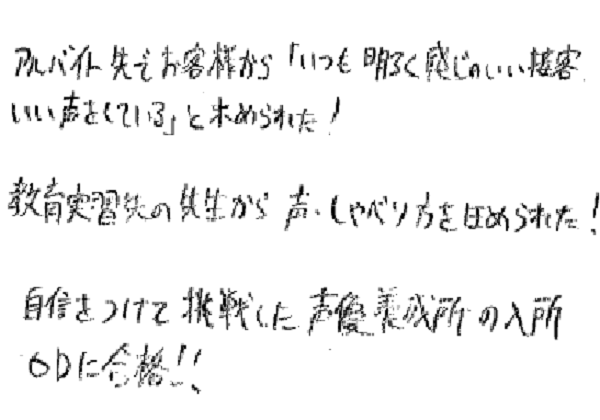 アルバイト先でお客様から「いつも明るく感じのいい接客
いい声をしている」とホめられた！
教育実習先の先生から声・しゃべり方をほめられた！
自信をつけて挑戦した声優養成所の入所
ODに合格！！